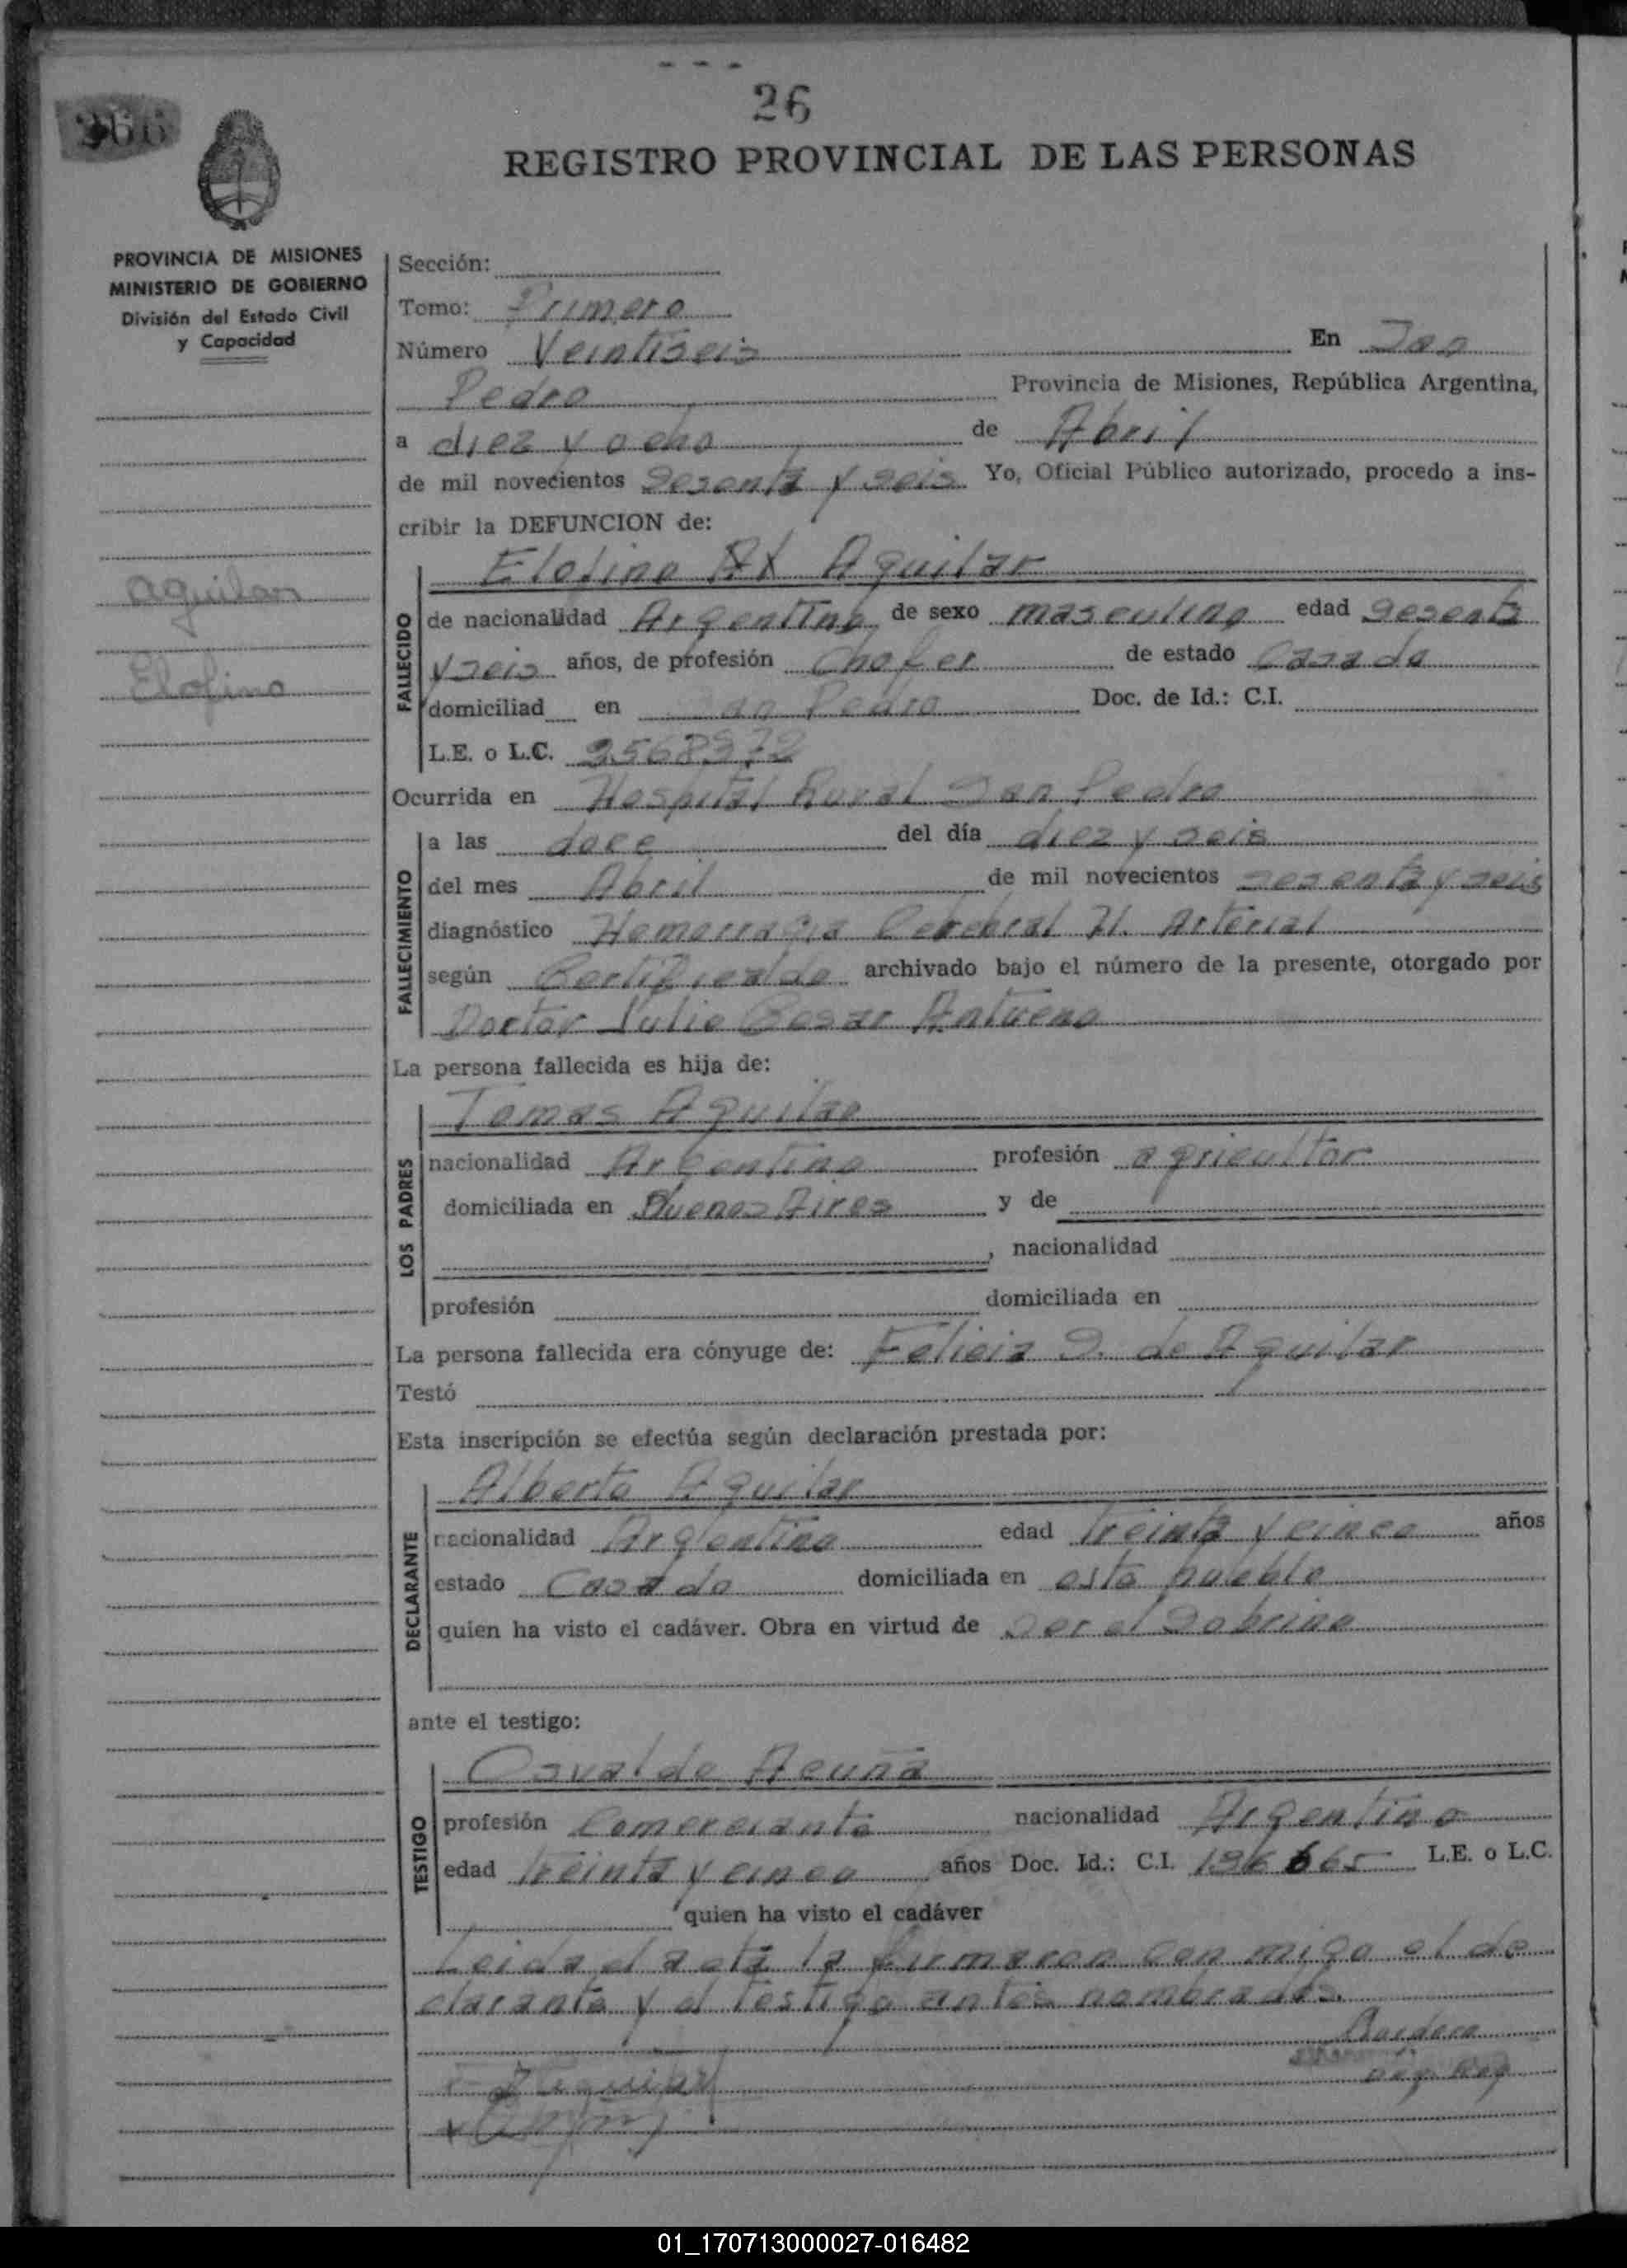 26
266
REGISTRO PROVINCIAL DE LAS PERSONAS
PROVINCIA DE MISIONES
MINISTERIO DE GOBIERNO
División del Estado Civil
y Capacidad
Aguilar
Elofino
Sección:
Tomo: Primero
Número Veintiseis En San
Pedro Provincia de Misiones, República Argentina,
a diez y ocho de Abril
de mil novecientos sesenta y seis Yo, Oficial Público autorizado, procedo a ins-
cribir la DEFUNCION de:
Elofino Aguilar
FALLECIDO
de nacionalidad Argentina de sexo masculino edad sesenta
y seis años, de profesión Chofer de estado Casado
domiciliad en San Pedro Doc. de Id.: C.I.
L.E. o L.C.
Ocurrida en Hospital Rural San Pedro
FALLECIMIENTO
a las doce del día diez y seis
del mes Abril de mil novecientos sesenta y seis
diagnóstico Hemorragia Cerebral H. Arterial
según Certificado archivado bajo el número de la presente, otorgado por
Doctor Julio Cesar Antueno
La persona fallecida es hija de:
Tomas Aguilar
LOS PADRES
nacionalidad Argentino profesión agricultor
domiciliada en Buenos Aires y de
, nacionalidad
profesión domiciliada en
La persona fallecida era cónyuge de: Felicia S. de Aguilar
Testó
Esta inscripción se efectúa según declaración prestada por:
Alberto Aguilar
DECLARANTE
nacionalidad Argentino edad treinta y cinco años
estado Casado domiciliada en este pueblo
quien ha visto el cadáver. Obra en virtud de ser el sobrino
ante el testigo:
Osvaldo Acuña
TESTIGO
profesión Comerciante nacionalidad Argentino
edad treinta y cinco años Doc. Id.: C.I. 196665 L.E. o L.C.
quien ha visto el cadáver
Leida el acta la firmaron conmigo el de
clarante y el testigo antes nombrados.
Aguilar
01_170713000027-016482